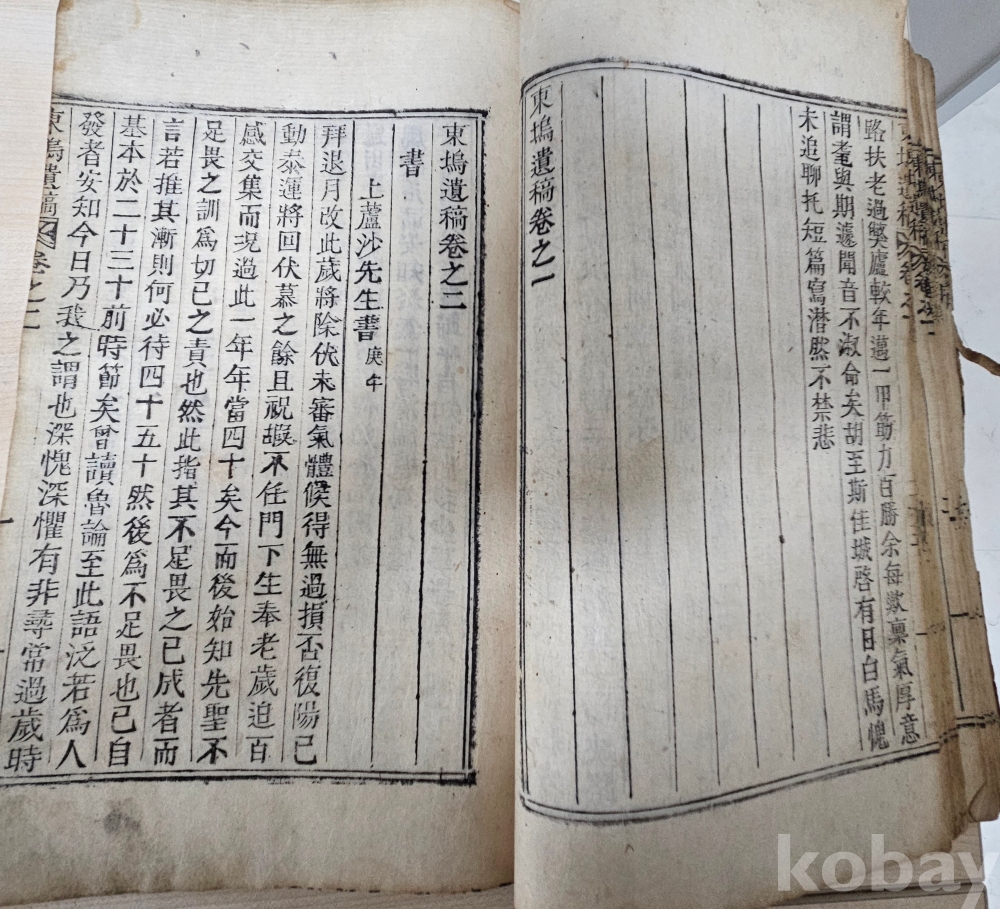 路扶老過弊廬軟年邁一甲筋力百勝余每歎稟氣厚意
謂耄與期遽聞音不淑侖矣胡至斯佳城啓有日白馬愧
未追聊托短篇寫潜然不禁悲
東塢遺稿卷之一
東塢遺稿卷之二
書
上蘆沙先生書 庚午
拜退月改此歲將除伏未審氣體候得無過損否復陽已
動泰運將回伏慕之餘且祝嘏不任門下生奉老歲迫百
感交集而現過此一年年當四十矣今而後始知先聖不
足畏之訓爲切已之責也然此指其不足畏之已成者而
言若推其漸則何必待四十五十然後爲不足畏也已自
基本於二十三十前時節矣曾讀魯論至此語泛若爲人
發者安知今日乃我之謂也深愧深懼有非尋常過歲時
東塢遺稿 卷之二
一
kobay